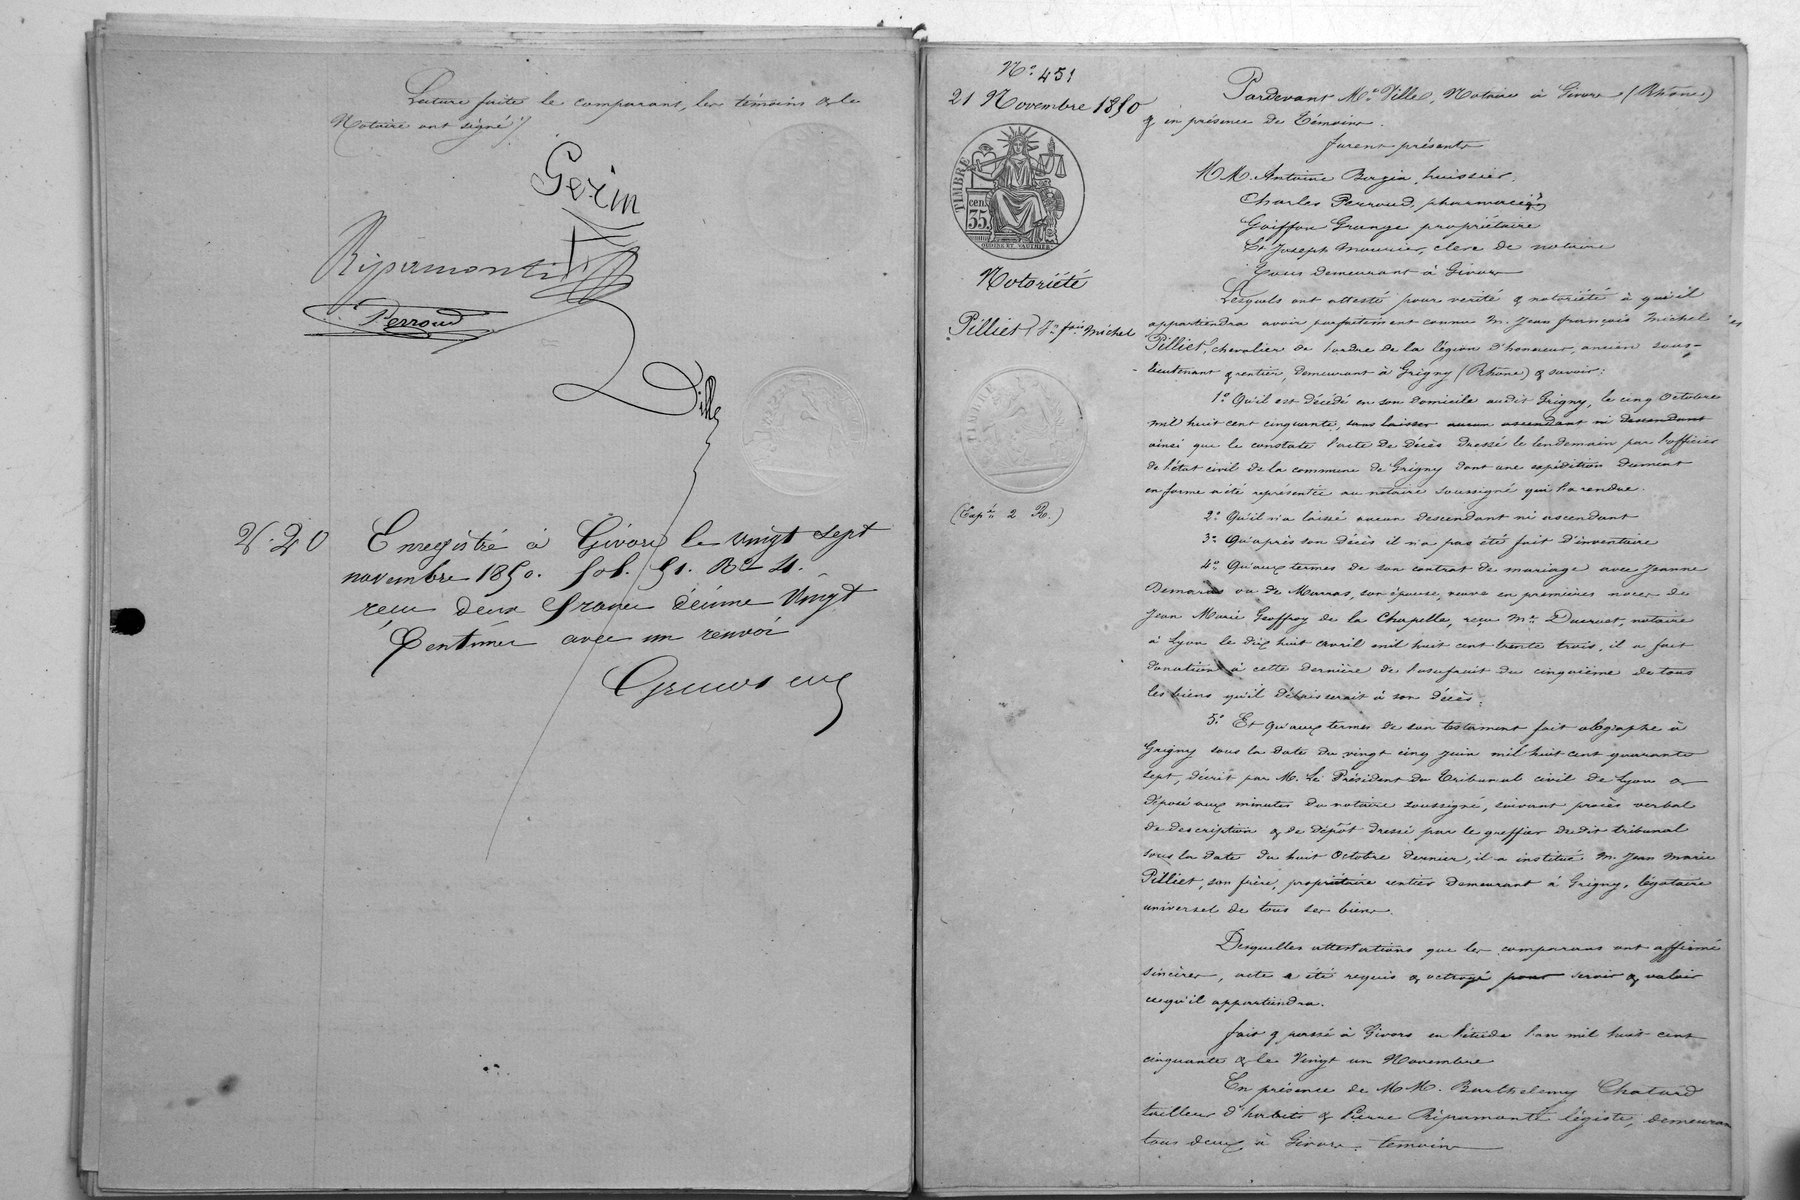 Lecture faite le comparant, les témoins & le
Notaire ont signé ./.
Gerin
Ripamonti
Perroud
Ville
2.20
Enregistré à Givors le vingt sept
novembre 1850. fol. 51. R° 4.
reçu deux francs décime vingt
Centimes avec un renvoi
N° 451
21 Novembre 1850
TIMBRE
35 cen.
Notoriété
Pilliet, Jn. fois Michel
TIMBRE
(Exp.on 2 R.)
Pardevant Me. Ville, Notaire à Givors (Rhône)
& en présence de Témoins.
furent présents
MM Antoine Bergin, huissier,
Charles Perroud, pharmacien
Goiffon Grange propriétaire
Et Joseph Mounier, clerc de notaire
Tous demeurant à Givors
Lesquels ont attesté pour vérité & notoriété à qui il
appartiendra avoir parfaitement connu M. Jean françois Michel
Pilliet, chevalier de l'ordre de la légion d'honneur, ancien sous-
lieutenant & rentier, demeurant à Grigny (Rhône) & savoir :
1° Qu'il est décédé en son domicile audit Grigny, le cinq Octobre
mil huit cent cinquante, sans laisser aucun ascendant ni descendant
ainsi que le constate l'acte de décès dressé le lendemain par l'officier
de l'état civil de la commune de Grigny dont une expédition dument
en forme a été représentée au notaire soussigné qui l'a rendue.
2° Qu'il n'a laissé aucun descendant ni ascendant
3° Qu'après son décès il n'a pas été fait d'inventaire
4° Qu'aux termes de son contrat de mariage avec Jeanne
Demaras ou de Marras, son épouse, veuve en premières noces de
Jean Marie Geoffroy de la Chapelle, reçu Me. Ducruet, notaire
à Lyon le dix huit avril mil huit cent trente trois, il a fait
donation à cette dernière de l'usufruit du cinquième de tous
les biens qu'il délaisserait à son décès :
5° Et qu'aux termes de son testament fait olographe à
Grigny sous la date du vingt cinq juin mil huit cent quarante
sept, décrit par M. Le Président du Tribunal civil de Lyon &
déposé aux minutes du notaire soussigné, suivant procès verbal
de description & de dépôt dressé par le greffier dudit tribunal
sous la date du huit Octobre dernier, il a institué M. Jean Marie
Pilliet, son frère, propriétaire rentier demeurant à Grigny, légataire
universel de tous ses biens.
Desquelles attestations que les comparans ont affirmé
sincères, acte a été requis & octroyé pour servir & valoir
ce qu'il appartiendra.
fait & passé à Givors en l'étude l'an mil huit cent
cinquante & le vingt un Novembre
En présence de MM. Barthelemy Chatard
tailleur d'habits & Pierre Ripamonti légiste, demeurant
tous deux à Givors témoins